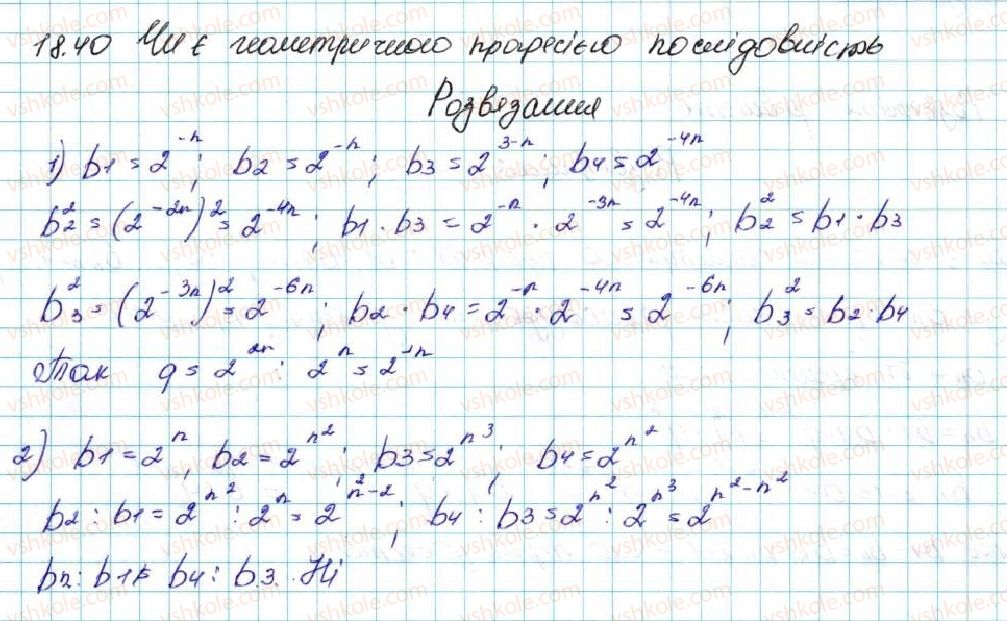 18.40 Чи є геометричною прогресією послідовність
Розвязання
1) b1 = 2^-n; b2 = 2^-n; b3 = 2^3-n; b4 = 2^-4n
b2^2 = (2^-2n)^2 = 2^-4n; b1 · b3 = 2^-n · 2^-3n = 2^-4n; b2^2 = b1 · b3
b3^2 = (2^-3n)^2 = 2^-6n; b2 · b4 = 2^-n · 2^-4n = 2^-6n; b3^2 = b2 · b4
Так q = 2^2n : 2^n = 2^-n
2) b1 = 2^n, b2 = 2^n^2; b3 = 2^n^3; b4 = 2^n^2
b2 : b1 = 2^n^2 : 2^n = 2^n^2-2; b4 : b3 = 2^n^2 : 2^n^3 = 2^n^2-n^2
b2 : b1 ≠ b4 : b3. Ні